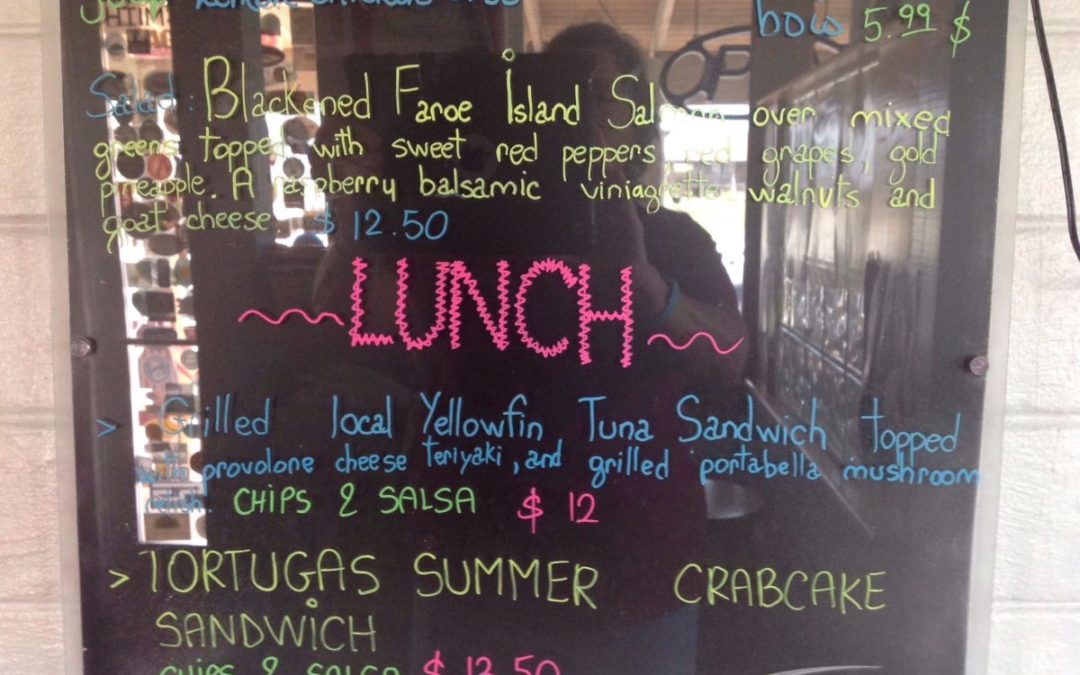 bowl 5.99 $
Salad: Blackened Faroe Island Salmon over mixed
greens topped with sweet red peppers, red grapes, gold
pineapple. A raspberry balsamic viniagrette walnuts and
goat cheese $ 12.50
LUNCH
> Grilled local Yellowfin Tuna Sandwich topped
with provolone cheese teriyaki, and grilled portabella mushroom
relish. CHIPS & SALSA $ 12
> TORTUGAS SUMMER CRABCAKE
SANDWICH
CHIPS & SALSA $ 13.50